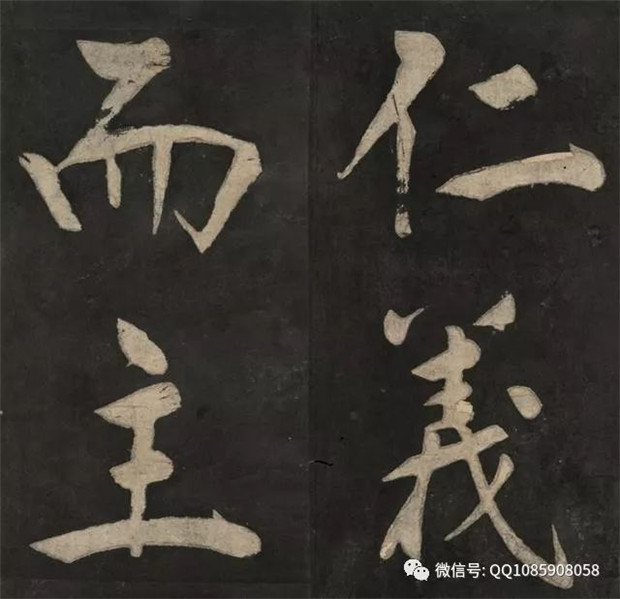 仁義
而主
微信号: QQ1085908058